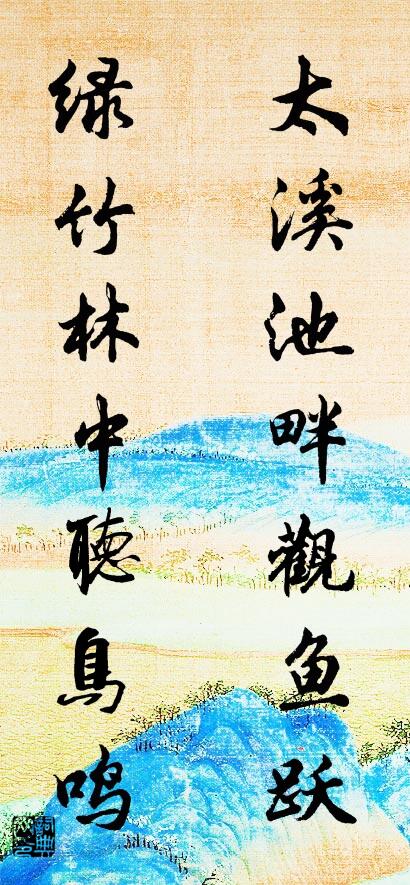 太溪池畔觀鱼跃
绿竹林中聽鳥鸣